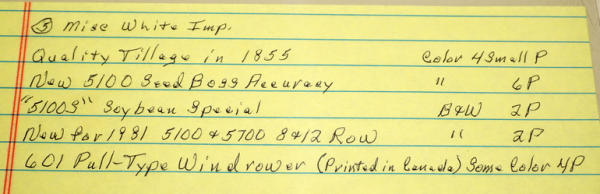 ⑤ Misc White Imp.
Quality Tillage in 1855 Color 4 Small P
New 5100 Seed Boss Accuracy " 6P
"5100S" Soybean Special B&W 2P
New for 1981 5100 & 5700 8 & 12 Row " 2P
601 Pull-Type Windrower (Printed in Canada) Some Color 4P